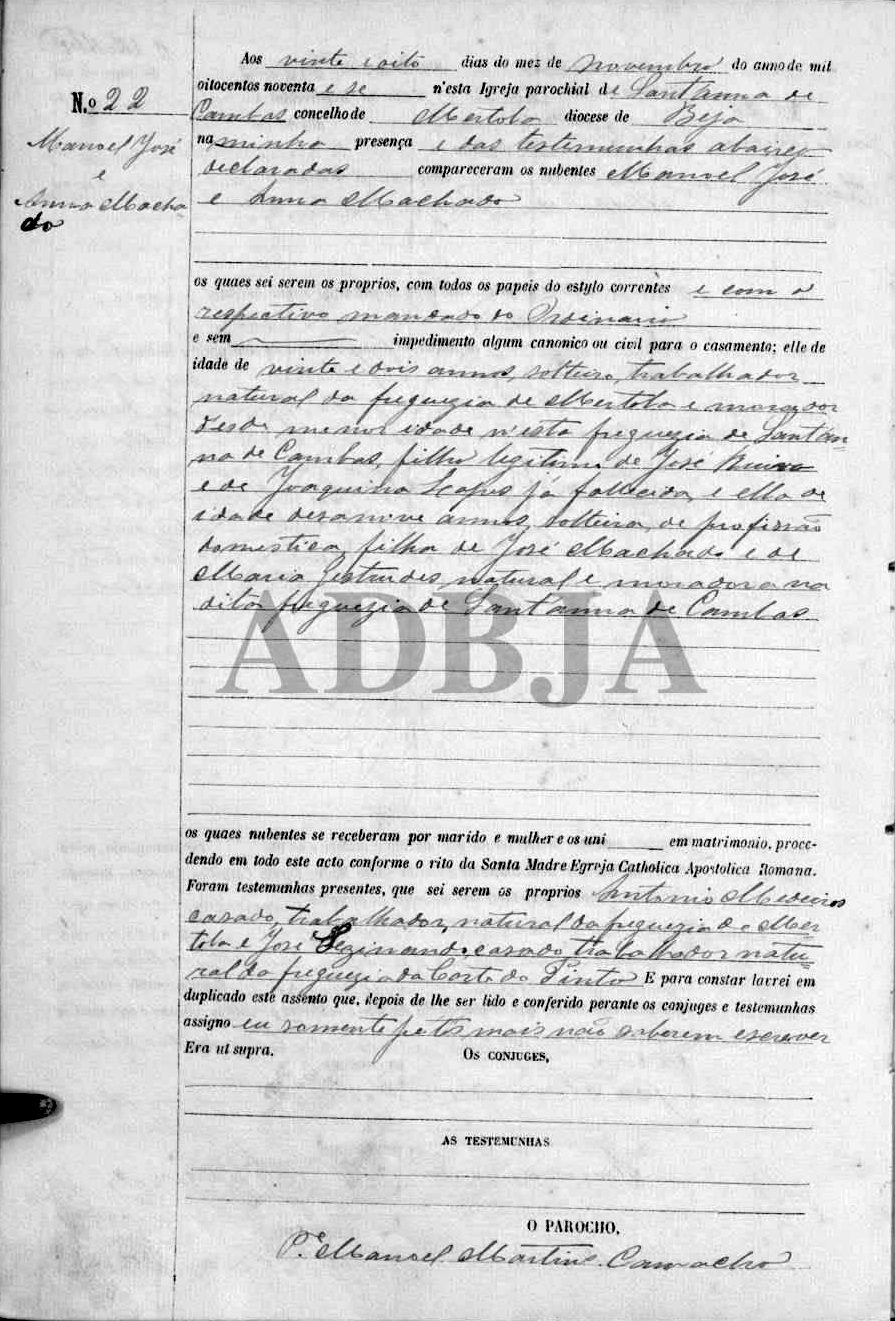 N.o 22
Manoel José
e
Anna Macha
do
Aos vinte e oito dias do mez de novembro do anno de mil
oitocentos noventa e se n'esta Igreja parochial de Sant'Anna de
Cambas concelho de Mertola diocese de Beja
na minha presença e das testemunhas abaixo
declaradas compareceram os nubentes Manoel José
e Anna Machado
os quaes sei serem os proprios, com todos os papeis do estylo correntes e com o
respectivo mandado do Ordinario
e sem impedimento algum canonico ou civil para o casamento; elle de
idade de vinte e dois annos, solteiro, trabalhador
natural da freguezia de Mertola e morador
desde menor idade n'esta freguezia de Sant'An=
na de Cambas, filho legitimo de José
e de Joaquina Lopes já fallecida, e ella de
idade desanove annos, solteira, de profissão
domestica, filha de José Machado e de
Maria Gertrudes, natural e moradora na
dita freguezia de Sant'anna de Cambas
ADBJA
os quaes nubentes se receberam por marido e mulher e os uni em matrimonio, proce-
dendo em todo este acto conforme o rito da Santa Madre Egreja Catholica Apostolica Romana.
Foram testemunhas presentes, que sei serem os proprios Antonio Medeiros
casado, trabalhador, natural da freguezia de Mer
tola e José casado trabalhador natu=
ral da freguezia da Corte do Pinto E para constar lavrei em
duplicado este assento que, depois de lhe ser lido e conferido perante os conjuges e testemunhas
assigno eu somente pr os mais não saberem escrever
Era ut supra. Os CONJUGES,
AS TESTEMUNHAS
O PAROCHO,
P.e Manoel Martins Camacho